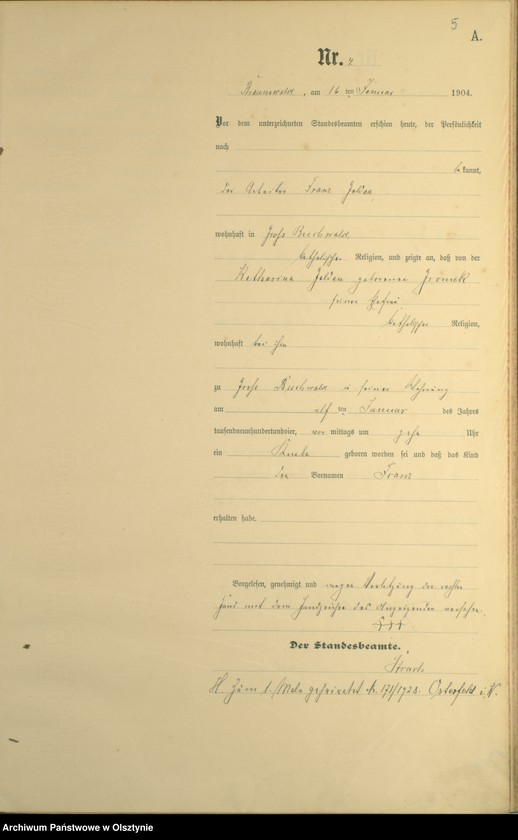 5
A.
Nr. 4
Braunswalde, am 16 ten Januar 1904.
Vor dem unterzeichneten Standesbeamten erschien heute, der Persönlichkeit
nach
bekannt,
der Arbeiter Franz
wohnhaft in Groß Buchwalde
katholischer Religion, und zeigte an, daß von der
Katharina geborenen
seiner Ehefrau
katholischer Religion,
wohnhaft bei ihm
zu Groß Buchwalde in seiner Wohnung
am elf ten Januar des Jahres
tausendneunhundertundvier, vor mittags um zehn Uhr
ein Knabe geboren worden sei und daß das Kind
den Vornamen Franz
erhalten habe.
Vorgelesen, genehmigt und wegen Verletzung der rechten
Hand mit dem Handzeichen des Anzeigenden versehen.
+++
Der Standesbeamte.
H. Zum 1. Male geheiratet Nr. 171/1928 Osterfeld i. W.
Archiwum Państwowe w Olsztynie